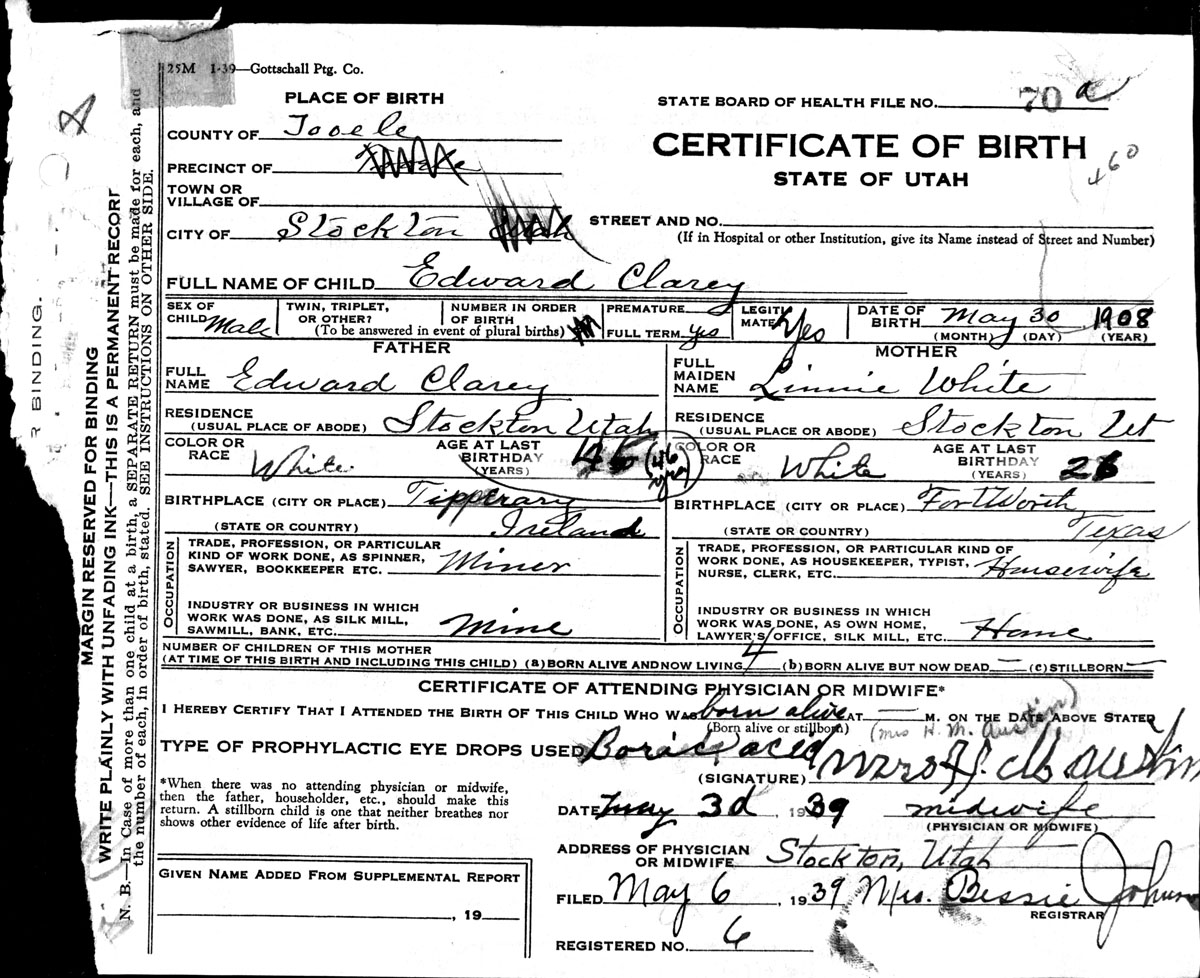 25M 1-39—Gottschall Ptg. Co.
PLACE OF BIRTH
STATE BOARD OF HEALTH FILE NO. 70 a
COUNTY OF Tooele
CERTIFICATE OF BIRTH
STATE OF UTAH
460
PRECINCT OF
TOWN OR
VILLAGE OF
CITY OF Stockton Utah
STREET AND NO.
(If in Hospital or other Institution, give its Name instead of Street and Number)
FULL NAME OF CHILD Edward Clarey
SEX OF CHILD Male
TWIN, TRIPLET, OR OTHER?
NUMBER IN ORDER OF BIRTH
(To be answered in event of plural births)
PREMATURE
FULL TERM yes
LEGITIMATE? Yes
DATE OF BIRTH May 30 1908
(MONTH) (DAY) (YEAR)
FATHER
FULL NAME Edward Clarey
RESIDENCE (USUAL PLACE OF ABODE) Stockton Utah
COLOR OR RACE White
AGE AT LAST BIRTHDAY (YEARS) 46 (46 yrs)
BIRTHPLACE (CITY OR PLACE) Tipperary
(STATE OR COUNTRY) Ireland
OCCUPATION
TRADE, PROFESSION, OR PARTICULAR
KIND OF WORK DONE, AS SPINNER,
SAWYER, BOOKKEEPER ETC. Miner
INDUSTRY OR BUSINESS IN WHICH
WORK WAS DONE, AS SILK MILL,
SAWMILL, BANK, ETC. Mine
MOTHER
FULL MAIDEN NAME Linnie White
RESIDENCE (USUAL PLACE OR ABODE) Stockton Ut
COLOR OR RACE White
AGE AT LAST BIRTHDAY (YEARS) 26
BIRTHPLACE (CITY OR PLACE) Fort Worth
(STATE OR COUNTRY) Texas
OCCUPATION
TRADE, PROFESSION, OR PARTICULAR KIND OF
WORK DONE, AS HOUSEKEEPER, TYPIST,
NURSE, CLERK, ETC. Housewife
INDUSTRY OR BUSINESS IN WHICH
WORK WAS DONE, AS OWN HOME,
LAWYER'S OFFICE, SILK MILL, ETC. Home
NUMBER OF CHILDREN OF THIS MOTHER
(AT TIME OF THIS BIRTH AND INCLUDING THIS CHILD) (a) BORN ALIVE AND NOW LIVING 4 (b) BORN ALIVE BUT NOW DEAD — (c) STILLBORN —
CERTIFICATE OF ATTENDING PHYSICIAN OR MIDWIFE*
I HEREBY CERTIFY THAT I ATTENDED THE BIRTH OF THIS CHILD WHO WAS born alive AT — M. ON THE DATE ABOVE STATED
(Born alive or stillborn) (Mrs H. M. Austin)
TYPE OF PROPHYLACTIC EYE DROPS USED Boracic acid
(SIGNATURE) Mrs H. M. Austin
*When there was no attending physician or midwife,
then the father, householder, etc., should make this
return. A stillborn child is one that neither breathes nor
shows other evidence of life after birth.
DATE May 3d, 1939 midwife
(PHYSICIAN OR MIDWIFE)
ADDRESS OF PHYSICIAN
OR MIDWIFE Stockton, Utah
GIVEN NAME ADDED FROM SUPPLEMENTAL REPORT
, 19
FILED May 6, 1939 Mrs. Bessie Johnson
REGISTRAR
REGISTERED NO. 6
R BINDING.
MARGIN RESERVED FOR BINDING
WRITE PLAINLY WITH UNFADING INK—THIS IS A PERMANENT RECORD
N. B.—In Case of more than one child at a birth, a SEPARATE RETURN must be made for each, and
the number of each, in order of birth, stated. SEE INSTRUCTIONS ON OTHER SIDE.